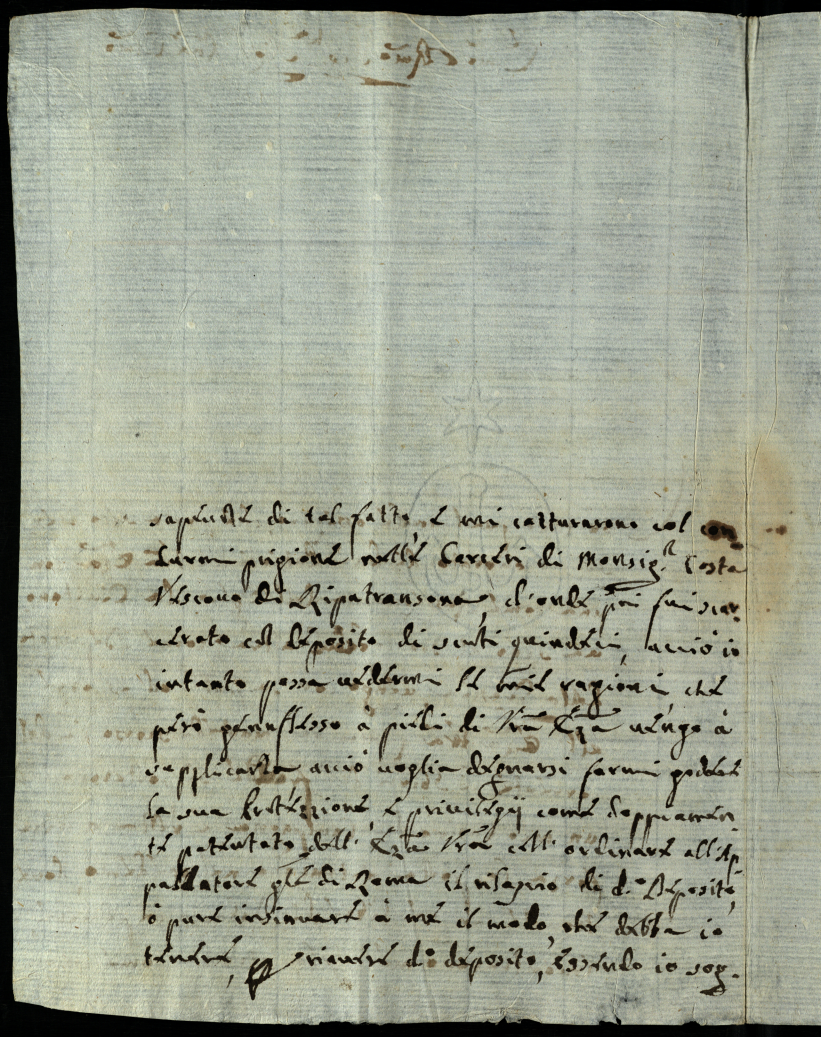 sapeuole di tal fatto e mi catturarono col con
durmi prigione nelle Carceri di Monsig.r Costa
Vescouo di Ripatransona, d'onde poi fui scar-
cerato col deposito di scuti quindeci, acciò io
intanto possa uedermi le mie ragioni, che
però genuflesso à piedi di Vra Ecza uengo à
supplicarla acciò uoglia degnarsi farmi godere
la sua Protezzione, e priuilegij come doppiamen
te patentato dell' Ecza Vra coll' ordinare all' Ap
paltatore gle di Roma il rilascio di d.o Deposito,
ò pure insinuare à me il modo, che debba io
tenere, riauere d.o deposito, essendo io sog-